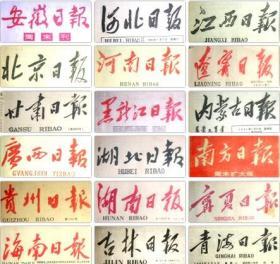 安徽日報
周末刊
河北日報
HEBEI RIBAO
江西日報
JIANGXI RIBAO
北京日報
河南日報
HENAN RIBAO
遼寧日報
LIAONING RIBAO
甘肅日報
GANSU RIBAO
黑龍江日報
内蒙古日報
廣西日報
GVANGJSIH YIZBAO
湖北日報
HUBEI RIBAO
南方日報
周末扩大版
貴州日報
GUIZHOU RIBAO
湖南日報
HUNAN RIBAO
寧夏日報
NINGXIA RIBAO
海南日報
吉林日報
JILIN RIBAO
青海日報
QINGHAI RIBAO